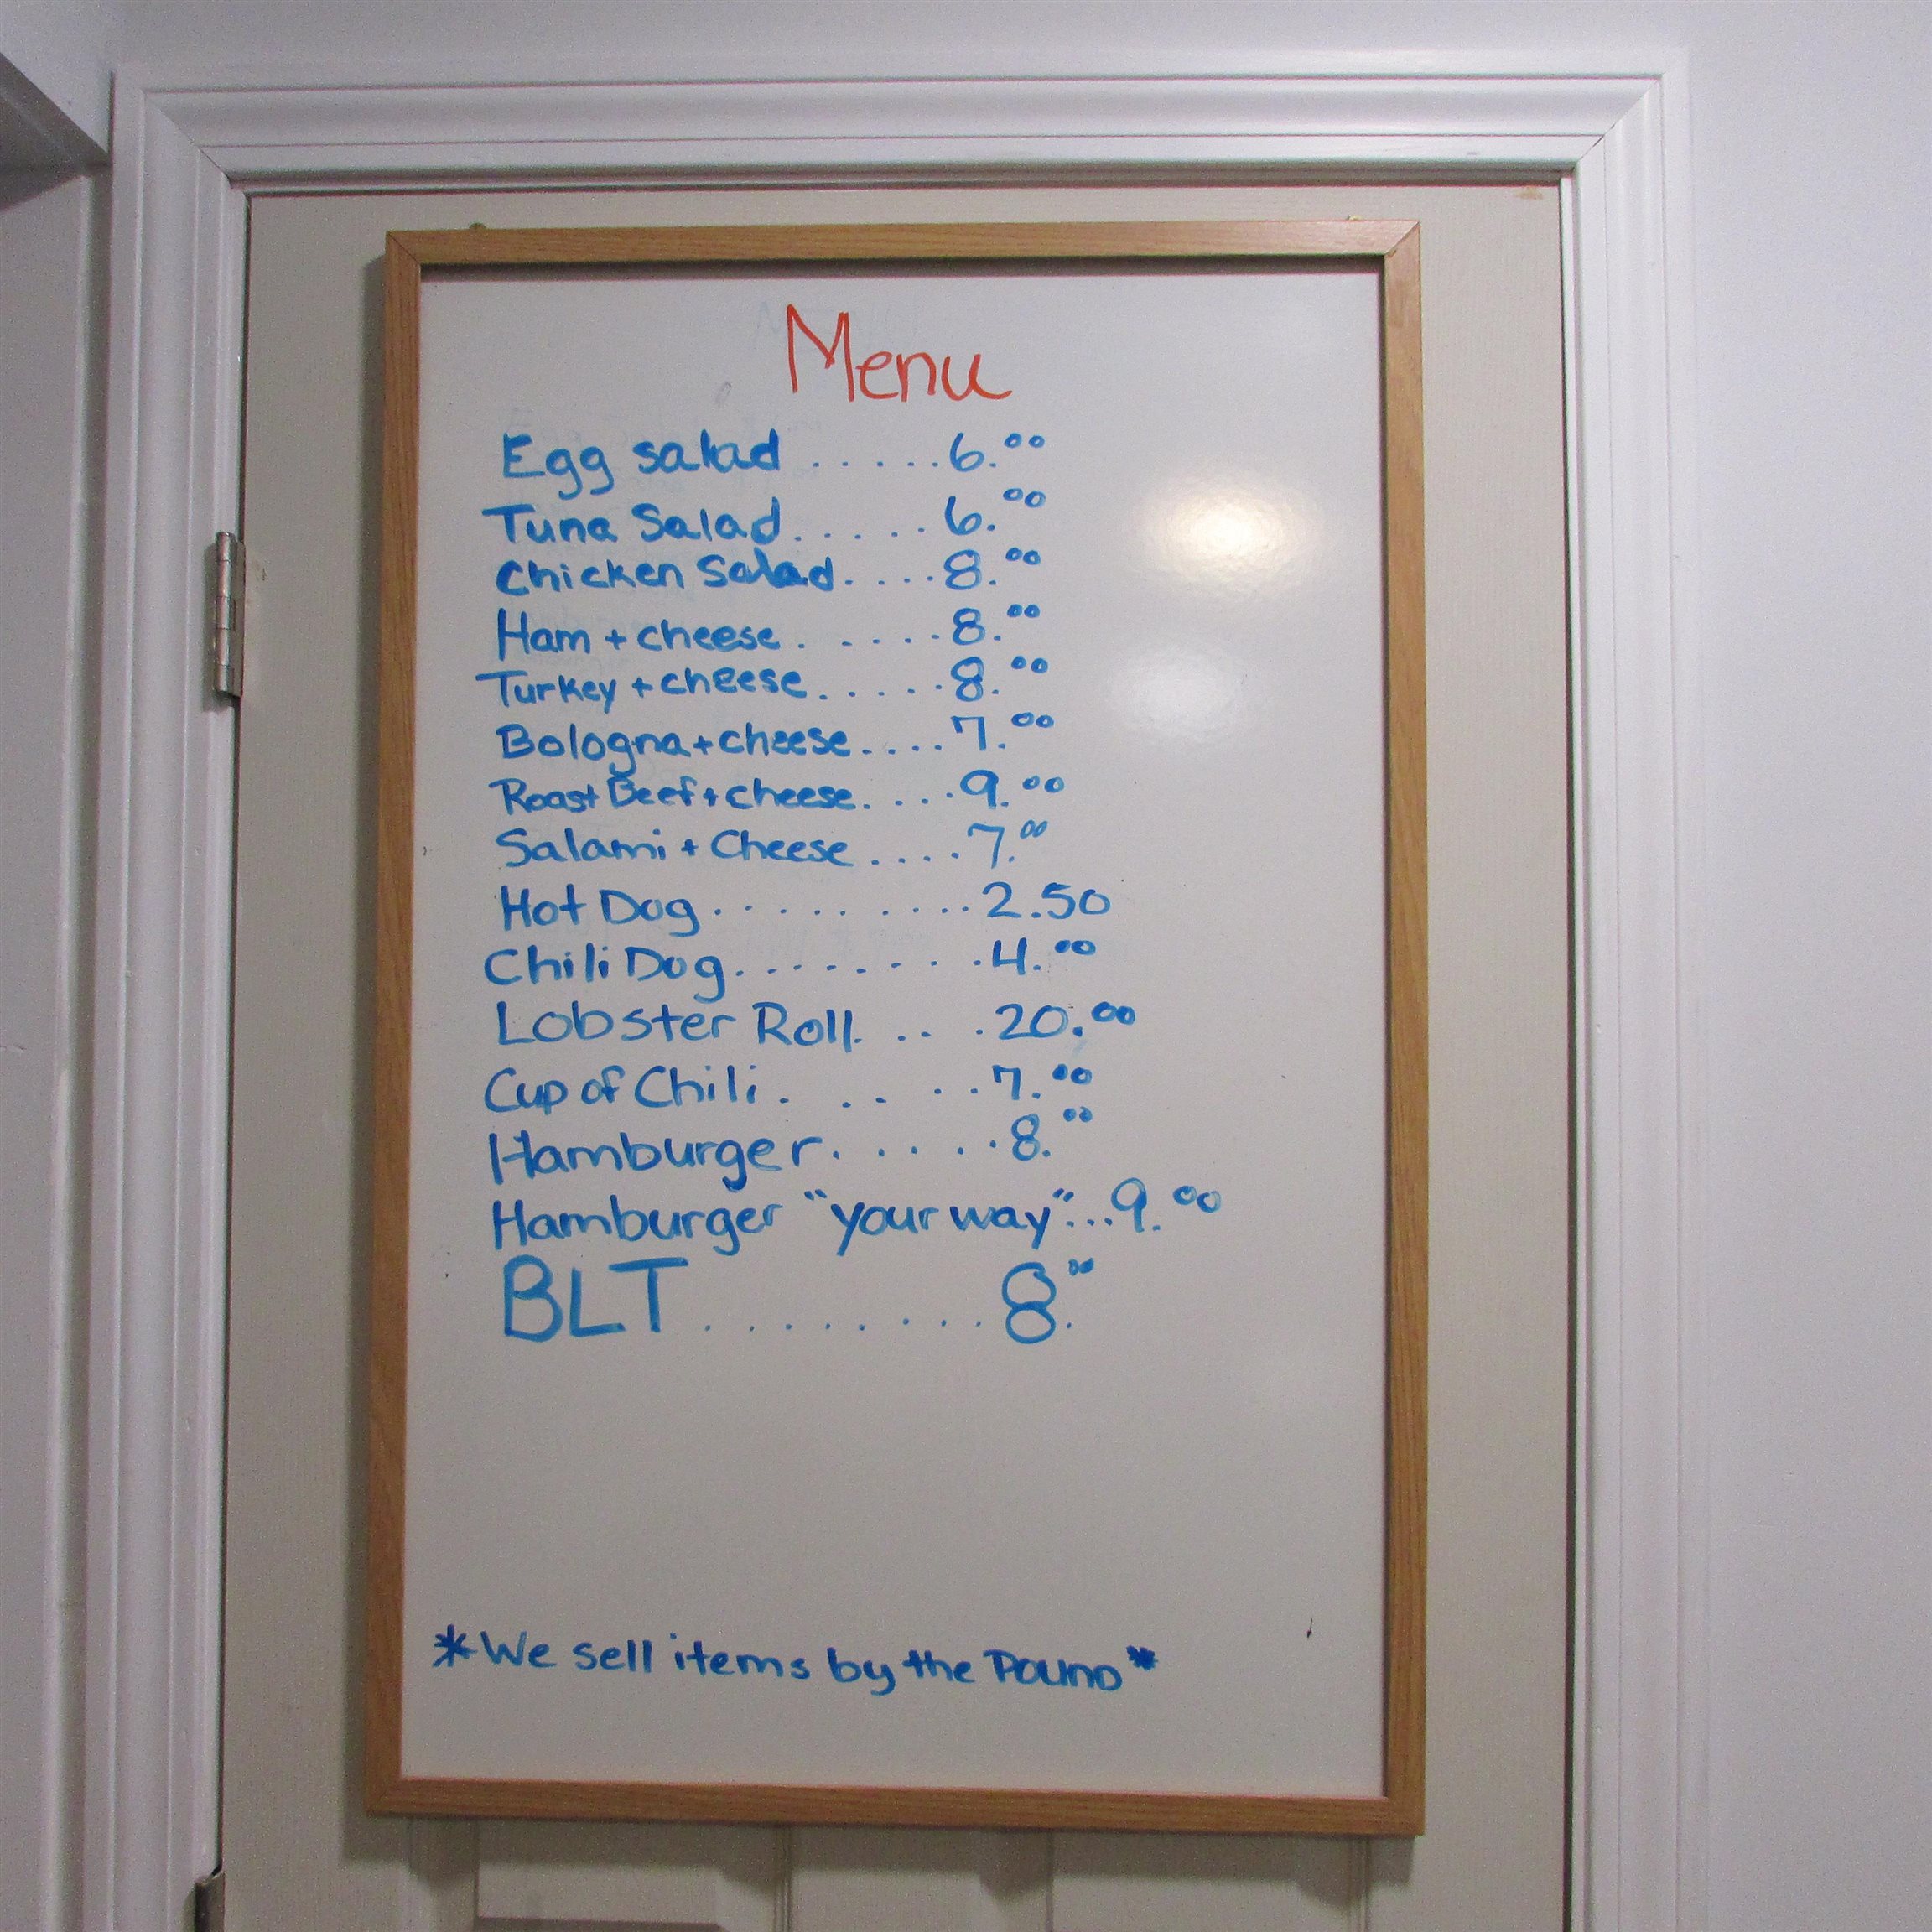 Menu
Egg salad .....6.00
Tuna Salad.....6.00
Chicken Salad....8.00
Ham + cheese.....8.00
Turkey + cheese.....8.00
Bologna + cheese....7.00
Roast Beef + cheese....9.00
Salami + Cheese....7.00
Hot Dog..........2.50
Chili Dog.........4.00
Lobster Roll....20.00
Cup of Chili.....7.00
Hamburger......8.00
Hamburger "your way"...9.00
BLT.........8.00
*We sell items by the Pound*